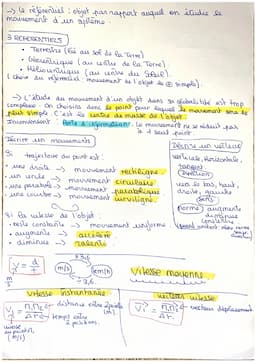 -> le référentiel : objet par rapport auquel on étudie le
mouvement d'un système.
3 REFERENTIELS
• Terrestre (lié au sol de la Terre)
• Géocentrique (au centre de la Terre)
• Héliocentrique (au centre du Soleil)
( choix du référentiel : mouvement de l'objet le simple).
-> L'étude du mouvement d'un objet dans sa globalité est trop
complexe. On choisira donc le point pour lequel le mouvement sera le
plus simple. C'est le centre de masse de l'objet.
Inconvénient : Perte d'information. Le mouvement ne se réduit pas
à 1 seul point.
Décrire un mouvement
Si trajectoire du point est :
• une droite -> mouvement rectiligne
• un cercle -> mouvement circulaire
• une parabole -> mouvement parabolique
• une courbe -> mouvement curviligne
Si la vitesse de l'objet :
• reste constante -> mouvement uniforme
• augmente -> accéléré
• diminue -> ralenti
Décrire un vecteur
verticale, horizontale,
Direction
vers le bas, haut,
droite, gauche
Sens
Norme augmente
diminue
constante
V = d/t
m/s
km/h
Vitesse moyenne
vitesse instantanée
distance entre 2 points
(m)
temps entre
2 positions
vitesse
au point
(m/s)
vecteur vitesse
vecteur déplacement